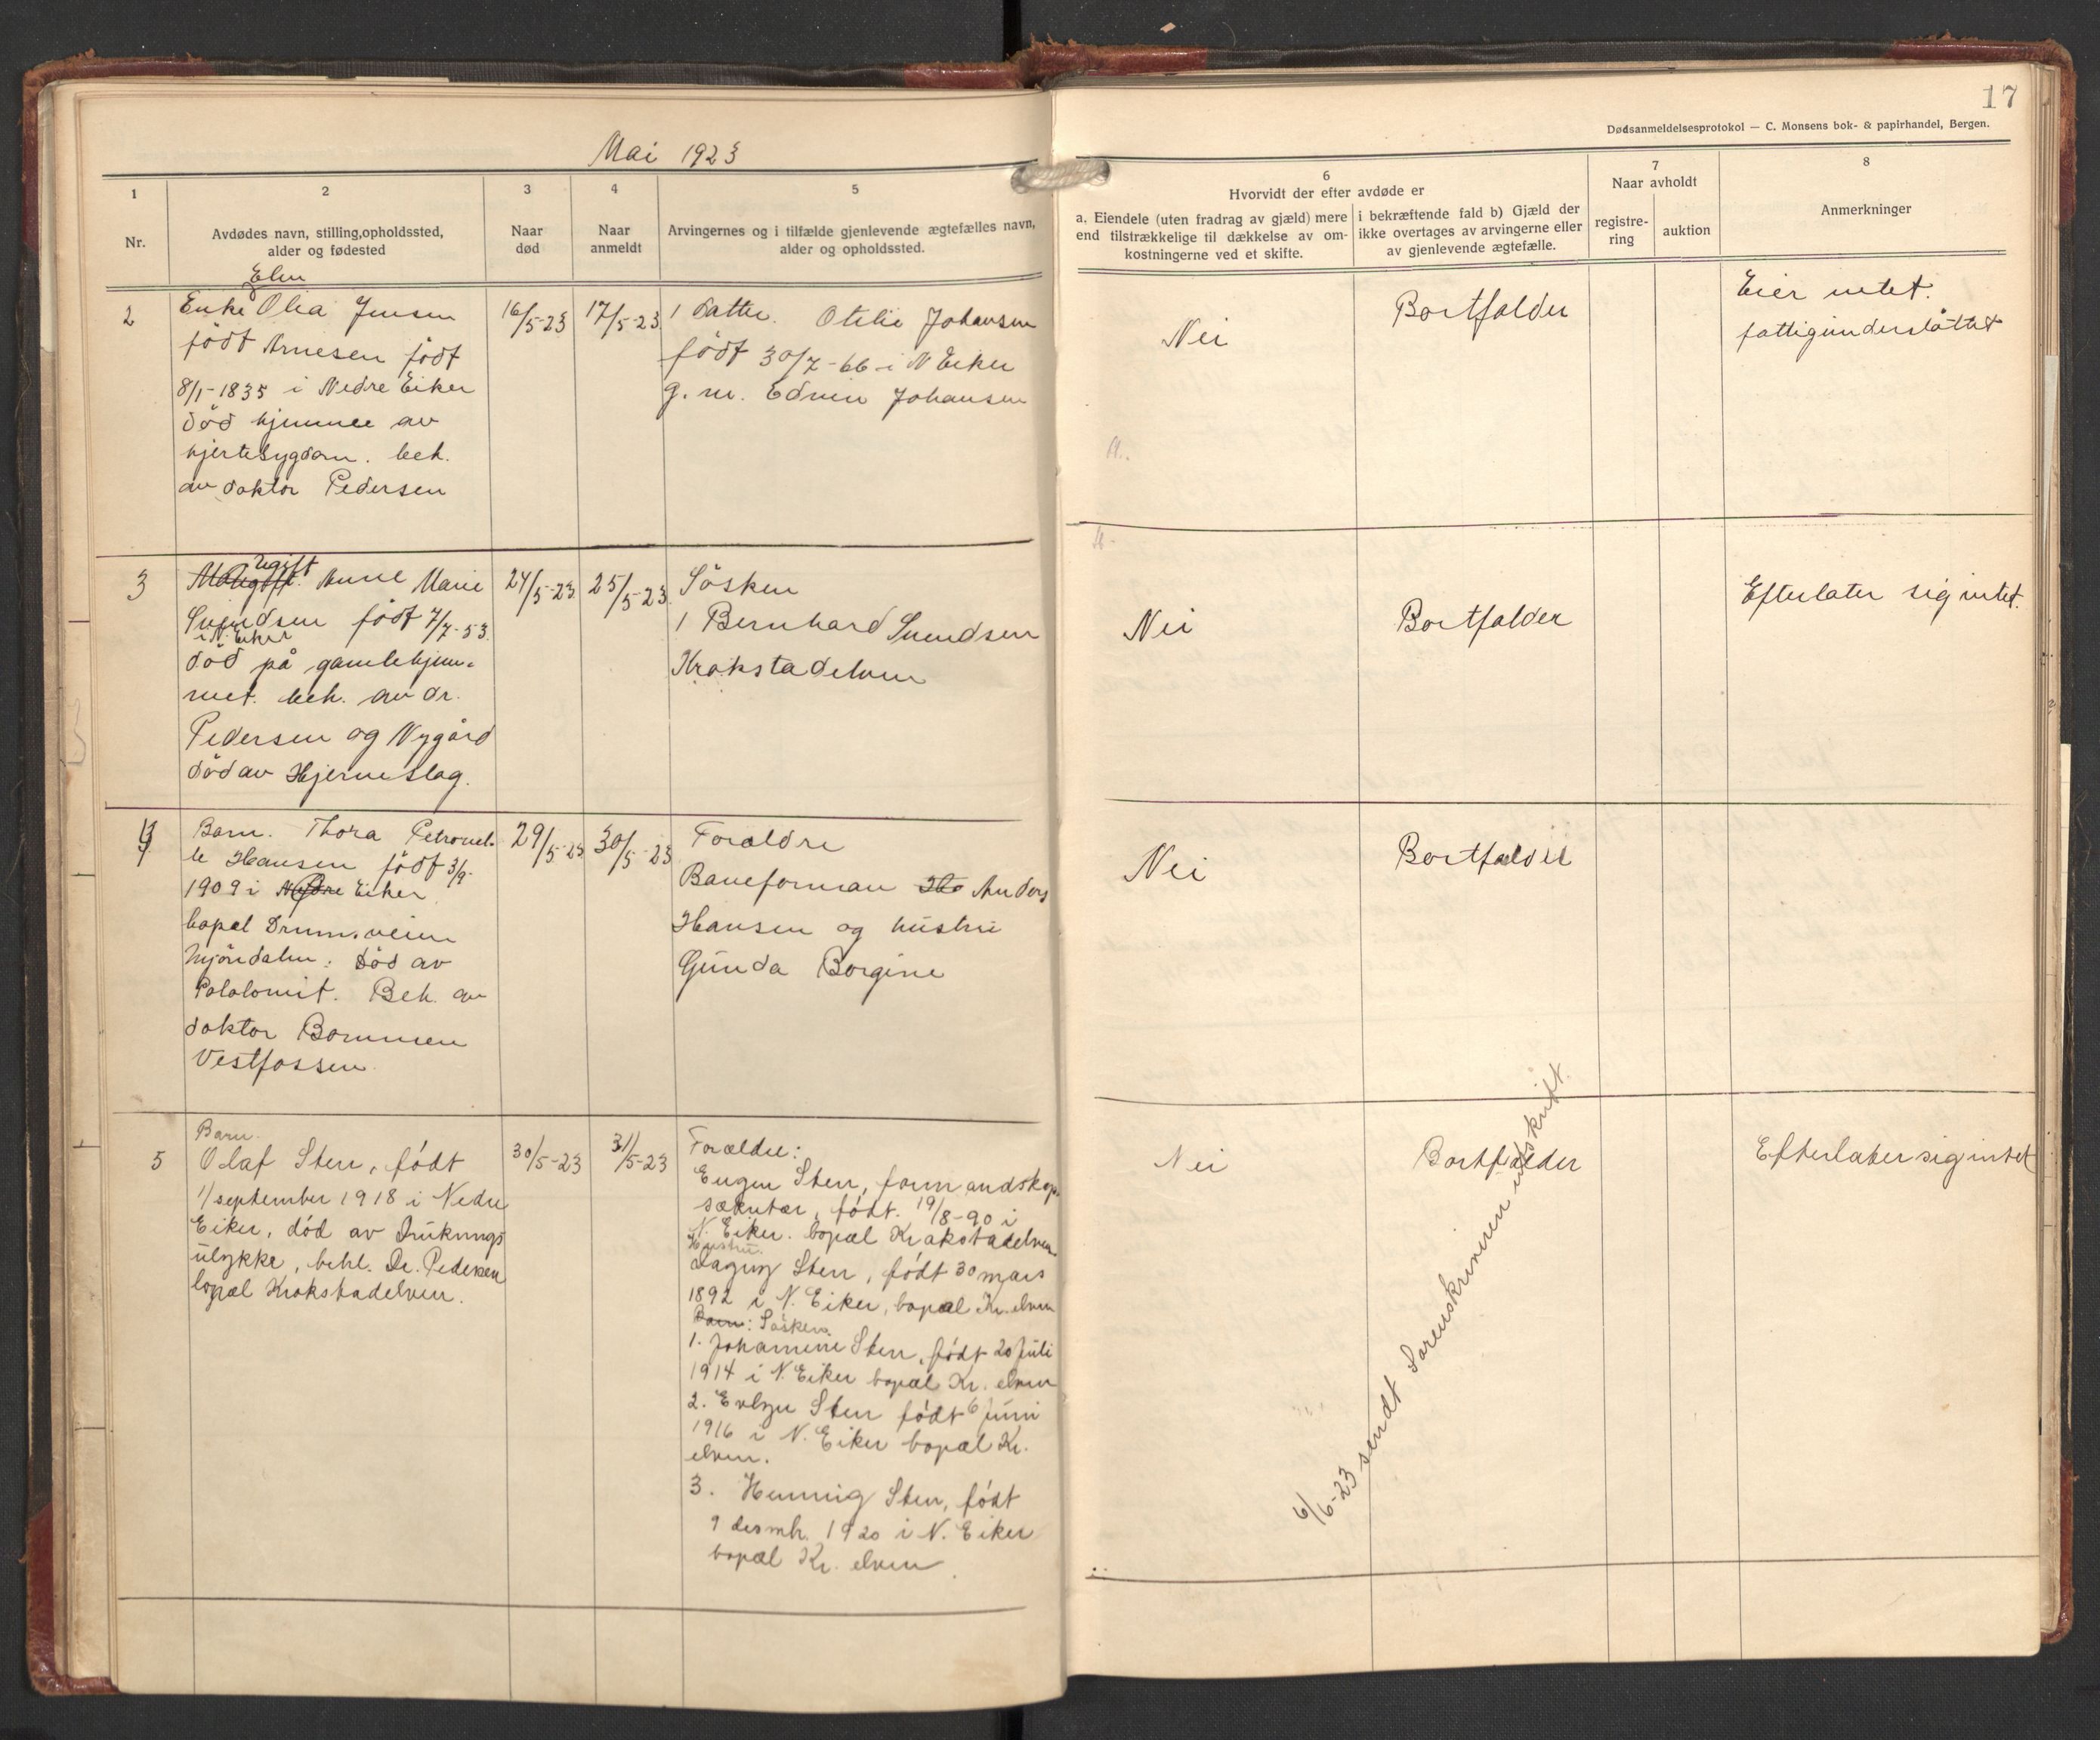 17
Dødsanmeldelsesprotokol — C. Monsens bok- & papirhandel, Bergen.
Mai 1923
1
Nr.
2
Avdødes navn, stilling, opholdssted,
alder og fødested
3
Naar
død
4
Naar
anmeldt
5
Arvingernes og i tilfælde gjenlevende ægtefælles navn,
alder og opholdssted.
6
Hvorvidt der efter avdøde er
a. Eiendele (uten fradrag av gjæld) mere
end tilstrækkelige til dækkelse av om-
kostningerne ved et skifte.
i bekræftende fald b) Gjæld der
ikke overtages av arvingerne eller
av gjenlevende ægtefælle.
7
Naar avholdt
registre-
ring
auktion
8
Anmerkninger
2
Elen
Enke Olea Jensen
født Arnesen født
8/1-1835 i Nedre Eiker
død hjemme av
hjertesygdom. beh.
av doktor Pedersen
16/5-23
17/5-23
1 Datter. Otilie Johansen
født 30/7-66 i N Eiker
g. m. Edvin Johansen
Nei
Bortfalder
Eier intet.
fattigunderstöttet
3
Ugift
Anne Marie
Svendsen født 7/7-53.
i N. Eiker
död på gamlehjem-
met. beh. av dr.
Pedersen og Nygård
död av Hjerneslag.
24/5-23
25/5-23
Søsken
1 Bernhard Svendsen
Krokstadelven
Nei
Bortfalder
Efterlater sig intet.
4
Barn. Thora Petronel-
le Hansen född 3/9-
1909 i Eiker
bopel Dramm.veien
Mjöndalen: Död av
Beh. av
doktor Bommen
Vestfossen
29/5-23
30/5-23
Foraldre
Baneforman Anders
Hansen og hustru
Gunda Borgine
Nei
Bortfalder
5
Barn.
Olaf Sten, født
1/september 1918 i Nedre
Eiker, død av Druknings
ulykke, behl. Dr. Pedersen
bopæl Krokstadelven.
30/5-23
31/5-23
Forældre:
Eugen Sten, formandskap
sækretær, født. 19/8-90 i
N. Eiker. bopæl Krokstadelven
Hustru.
Dagny Sten, født 30 mars
1892 i N. Eiker, bopæl Kr. elven
Barn: Søsken.
1. Johannne Sten, født 20 Juli
1914 i N. Eiker bopæl Kr. elven
2. Evelyn Sten født 6 Juni
1916 i N. Eiker bopæl Kr.
elven.
3. Henning Sten, født
9 desmb. 1920 i N. Eiker
bopæl Kr. elven.
Nei
Bortfalder
Efterlater sig intet
6/6-23 sendt Sorenskriveren utskrift.